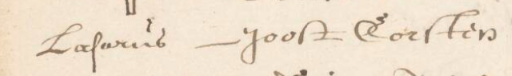 Lasarus – Joost Corsten